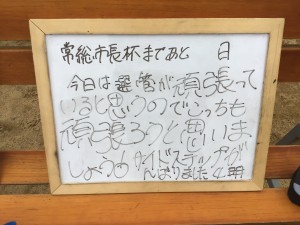 常総市長杯まであと 日
今日は選管が頑張って
いると思うのでこっちも
頑張ろうと思いま
しょう サイドステップが
んばりました